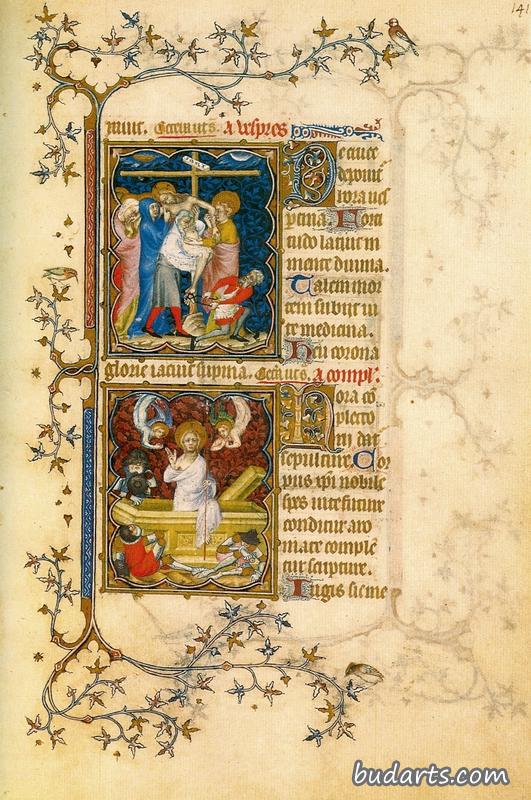 141
A vespres
De cruce
deponit
hora ves
ptina. Forti
tudo latuit in
mente divina.
Talem mor
tem subijt vi
te medicina.
Heu corona
glorie iacuit supina. A compl.
Hora co
pletto
rii dat
sepulture. Cor
pus xpi nobile
spes vite future
conditur aro
mate comple
tur scripture.
Iugis sic me
budarts.com